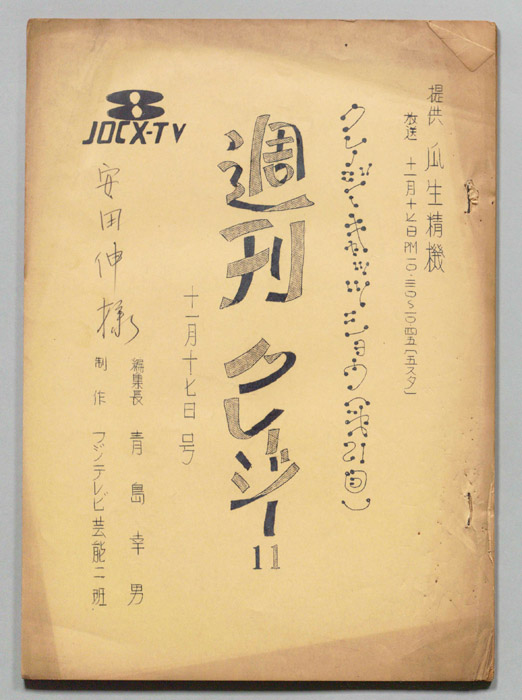 提供 瓜生精機
放送 十一月十七日PM一〇・三〇〜一〇・四五(五スタ)
クレージーキャッツショウ(第21回)
週刊クレージー
11
十一月十七日号
8
JOCX-TV
安田伸様
編集長 青島幸男
制作 フジテレビ芸能二班